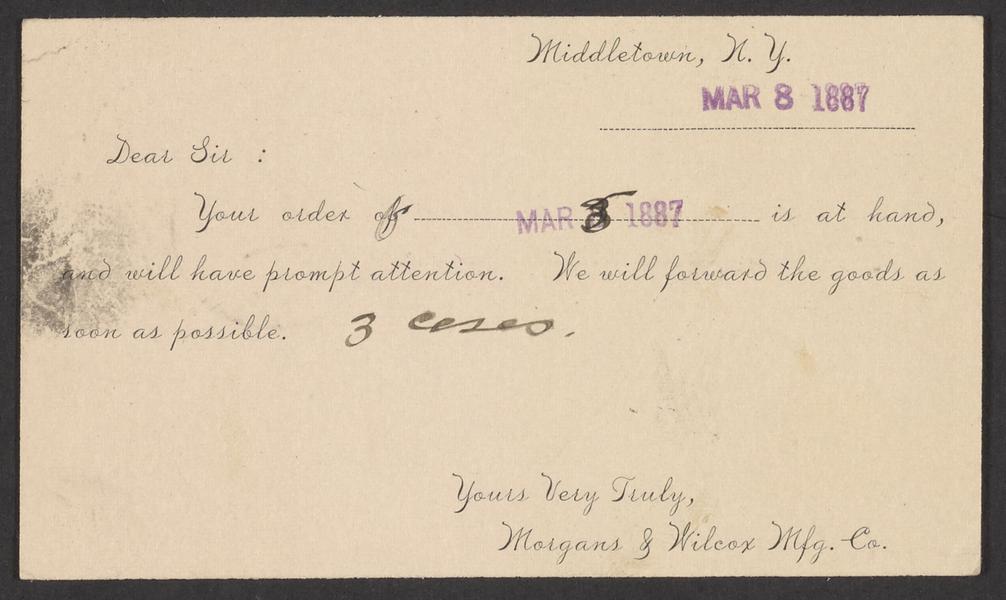 Middletown, N. Y.
MAR 8 1887
Dear Sir :
Your order of MAR 5 1887 is at hand,
and will have prompt attention. We will forward the goods as
soon as possible. 3 cases.
Yours Very Truly,
Morgans & Wilcox Mfg. Co.